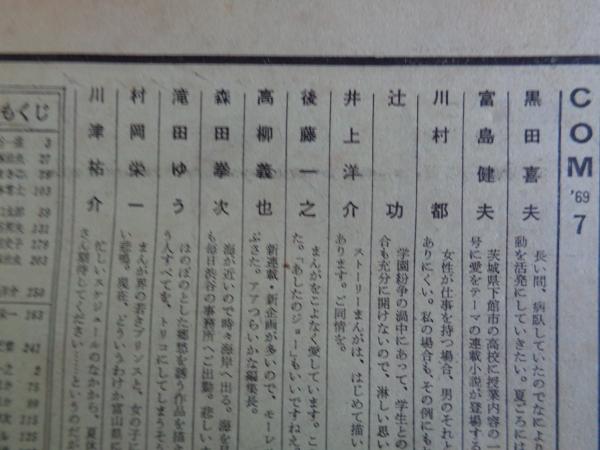 COM '69 7
黒田喜夫
長い間、病臥していたのでなにより
動を活発にしていきたい。夏ごろには
富島健夫
茨城県下館市の高校に授業内容の一
号に愛をテーマの連載小説が登場する
川村都
女性が仕事を持つ場合、男のそれと
ありにくい。私の場合も、その例にも
辻功
学園紛争の渦中にあって、学生との
合も充分に開けないので、淋しい思い
井上洋介
ストーリーまんがは、はじめて描い
あります。ご同情を。
後藤一之
まんがをこよなく愛しています。こ
た。「あしたのジョー」もいいですねえ
高柳義也
新連載・新企画が多いので、モーレ
ぶさた。アアつらいかな編集長。
森田拳次
海が近いので時々海岸へ出る。海を見
も毎日渋谷の事務所へご出勤。悲しい
滝田ゆう
ほのぼのとした郷愁を誘う作品を描き
う人すべてを、トリコにしてしまうそう
村岡栄一
まんが界の若きプリンスと、女の子に
い悲鳴。現在、どういうわけか富山県に
川津祐介
忙しいスケジュールのなかから、夏休
さん期待してください……というのだが
もくじ